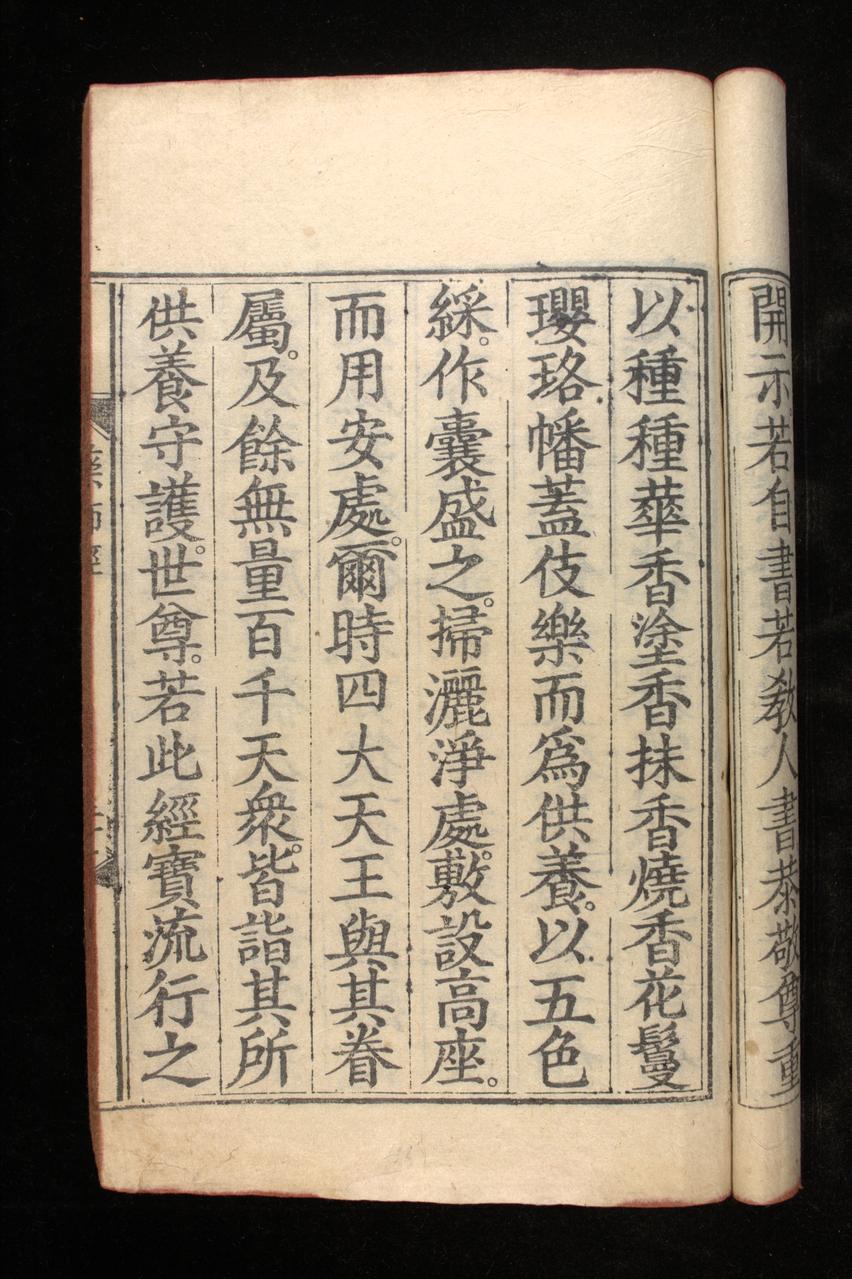 開示若自書若教人書恭敬尊重
以種種華香塗香抹香燒香花鬘
瓔珞幡蓋伎樂而為供養。以五色
綵。作囊盛之。掃灑淨處。敷設高座。
而用安處。爾時四大天王與其眷
屬。及餘無量百千天衆。皆詣其所
供養守護。世尊。若此經寶流行之
藥師經